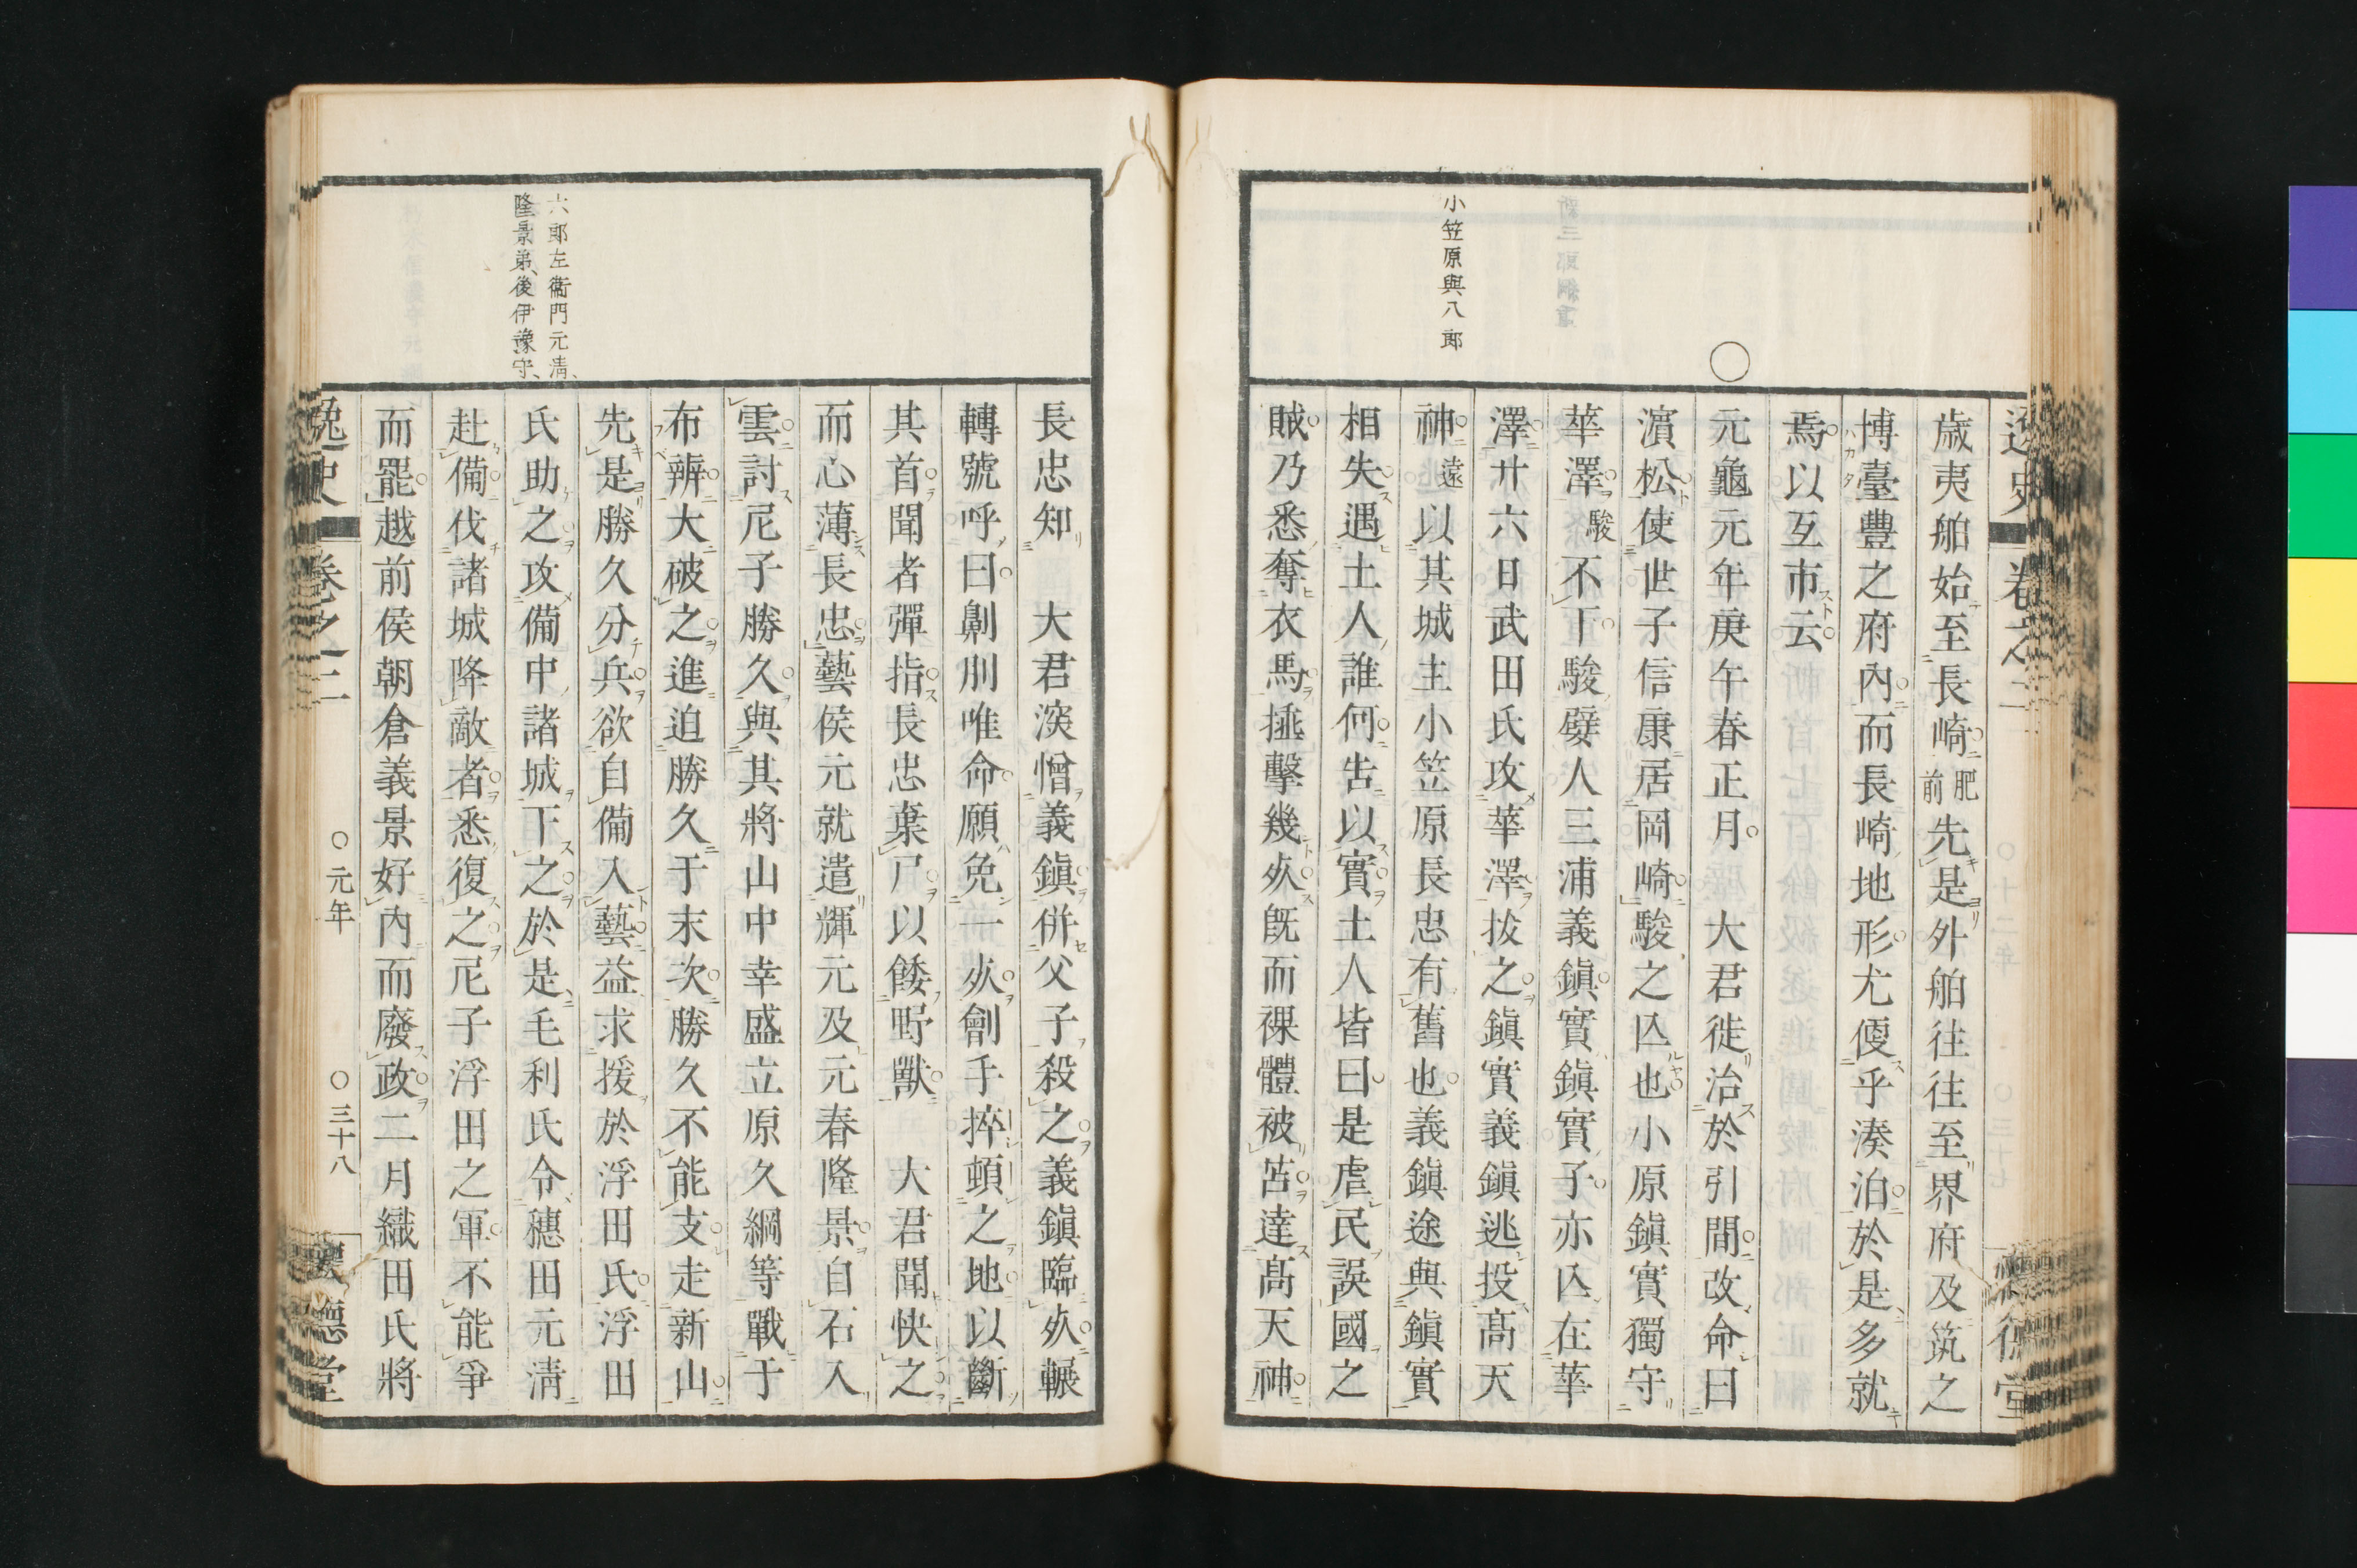 小笠原與八郎
歳夷舶始至長崎肥前先是外舶往往至界府及筑之
博臺豐之府內而長崎地形尤優乎湊泊於是多就
焉以互市云
元龜元年庚午春正月　大君徙治於引間改命曰
濵松使世子信康居岡崎駿之亾也小原鎭實獨守
華澤駿不下駿嬖人三浦義鎭實鎭實子亦亾在華
澤廿六日武田氏攻華澤拔之鎭實義鎭逃投髙天
神遠以其城主小笠原長忠有舊也義鎭途與鎭實
相失遇土人誰何告以實土人皆曰是虐民誤國之
賊乃悉奪衣馬捶擊幾死旣而裸體被笘達髙天神
六郎左衞門元淸、
隆景弟、後伊豫守、
長忠知　大君深憎義鎭併父子殺之義鎭臨死輾
轉號呼曰劓刖唯命願免一死劊手捽頓之地以斷
其首聞者彈指長忠棄尸以餧野獸　大君聞快之
而心薄長忠藝侯元就遣輝元及元春隆景自石入
雲討尼子勝久與其將山中幸盛立原久綱等戰于
布辨大破之進迫勝久于末次勝久不能支走新山
先是勝久分兵欲自備入藝益求援於浮田氏浮田
氏助之攻備中諸城下之於是毛利氏令穗田元淸
赴備伐諸城降敵者悉復之尼子浮田之軍不能爭
而罷越前侯朝倉義景好內而廢政二月織田氏將
逸史　卷之二　○元年　○三十八　懷德堂